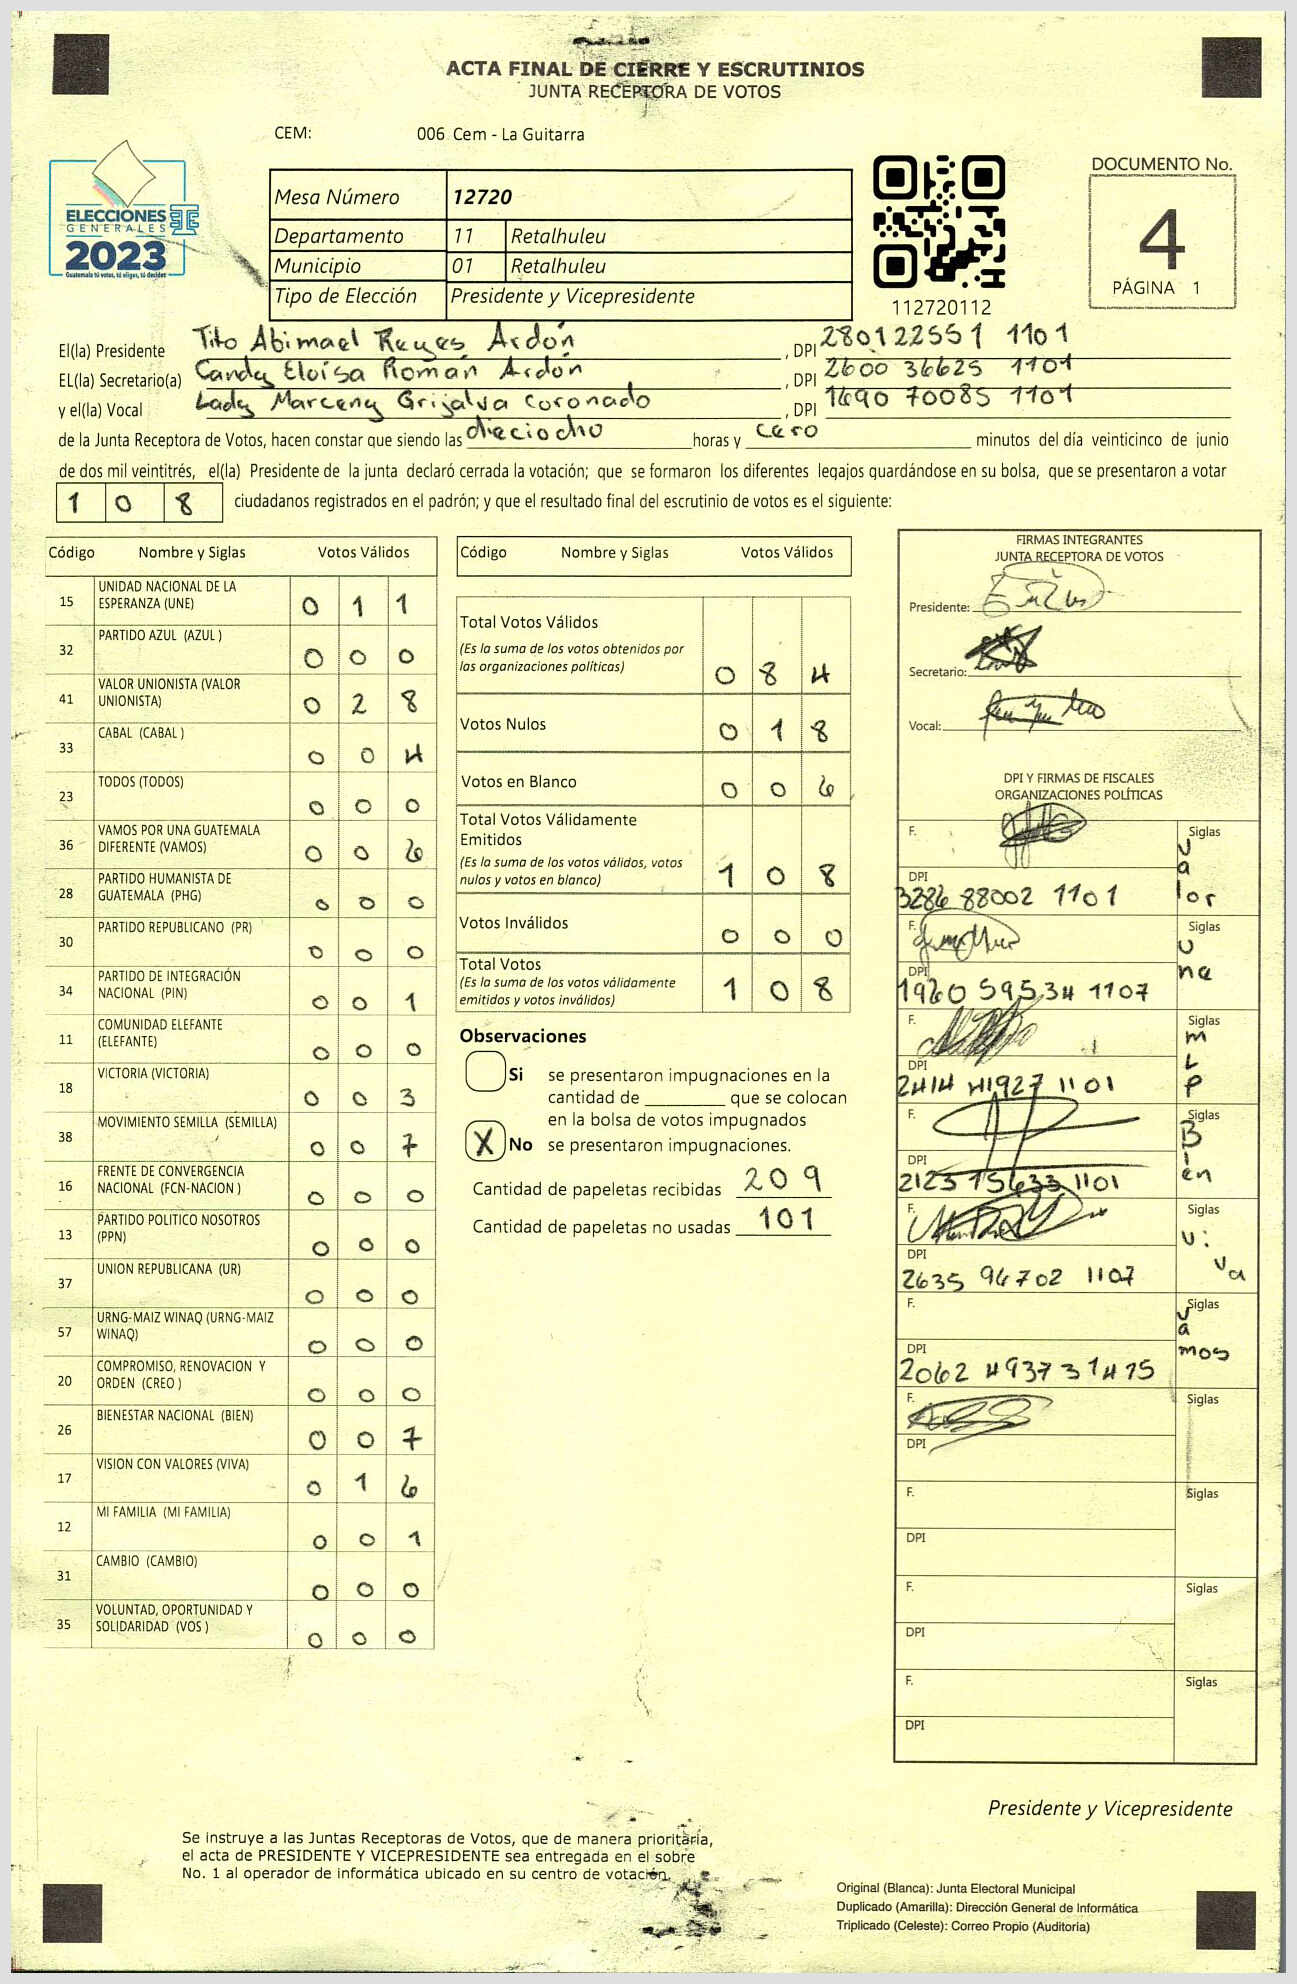 ACTA FINAL DE CIERRE Y ESCRUTINIOS
JUNTA RECEPTORA DE VOTOS
CEM: 006 Cem - La Guitarra
ELECCIONES
GENERALES
2023
Guatemala tú votas, tú eliges, tú decides
Mesa Número 12720
Departamento 11 Retalhuleu
Municipio 01 Retalhuleu
Tipo de Elección Presidente y Vicepresidente
112720112
DOCUMENTO No.
4
PÁGINA 1
El(la) Presidente Tito Abimael Reyes Ardón, DPI 280122551 1101
EL(la) Secretario(a) Candy Eloísa Román Ardón, DPI 2600 36625 1101
y el(la) Vocal Lady Marceny Grijalva Coronado, DPI 1690 70085 1101
de la Junta Receptora de Votos, hacen constar que siendo las dieciocho horas y cero minutos del día veinticinco de junio
de dos mil veintitrés, el(la) Presidente de la junta declaró cerrada la votación; que se formaron los diferentes legajos guardándose en su bolsa, que se presentaron a votar
1 0 8 ciudadanos registrados en el padrón; y que el resultado final del escrutinio de votos es el siguiente:
Código Nombre y Siglas Votos Válidos
15 UNIDAD NACIONAL DE LA
ESPERANZA (UNE) 0 1 1
32 PARTIDO AZUL (AZUL ) 0 0 0
41 VALOR UNIONISTA (VALOR
UNIONISTA) 0 2 8
33 CABAL (CABAL ) 0 0 4
23 TODOS (TODOS) 0 0 0
36 VAMOS POR UNA GUATEMALA
DIFERENTE (VAMOS) 0 0 6
28 PARTIDO HUMANISTA DE
GUATEMALA (PHG) 0 0 0
30 PARTIDO REPUBLICANO (PR) 0 0 0
34 PARTIDO DE INTEGRACIÓN
NACIONAL (PIN) 0 0 1
11 COMUNIDAD ELEFANTE
(ELEFANTE) 0 0 0
18 VICTORIA (VICTORIA) 0 0 3
38 MOVIMIENTO SEMILLA (SEMILLA) 0 0 7
16 FRENTE DE CONVERGENCIA
NACIONAL (FCN-NACION ) 0 0 0
13 PARTIDO POLITICO NOSOTROS
(PPN) 0 0 0
37 UNION REPUBLICANA (UR) 0 0 0
57 URNG-MAIZ WINAQ (URNG-MAIZ
WINAQ) 0 0 0
20 COMPROMISO, RENOVACION Y
ORDEN (CREO ) 0 0 0
26 BIENESTAR NACIONAL (BIEN) 0 0 7
17 VISION CON VALORES (VIVA) 0 1 6
12 MI FAMILIA (MI FAMILIA) 0 0 1
31 CAMBIO (CAMBIO) 0 0 0
35 VOLUNTAD, OPORTUNIDAD Y
SOLIDARIDAD (VOS ) 0 0 0
Código Nombre y Siglas Votos Válidos
Total Votos Válidos
(Es la suma de los votos obtenidos por
las organizaciones políticas) 0 8 4
Votos Nulos 0 1 8
Votos en Blanco 0 0 6
Total Votos Válidamente
Emitidos
(Es la suma de los votos válidos, votos
nulos y votos en blanco) 1 0 8
Votos Inválidos 0 0 0
Total Votos
(Es la suma de los votos válidamente
emitidos y votos inválidos) 1 0 8
Observaciones
Si se presentaron impugnaciones en la
cantidad de ________ que se colocan
en la bolsa de votos impugnados
X No se presentaron impugnaciones.
Cantidad de papeletas recibidas 209
Cantidad de papeletas no usadas 101
FIRMAS INTEGRANTES
JUNTA RECEPTORA DE VOTOS
Presidente:
Secretario:
Vocal:
DPI Y FIRMAS DE FISCALES
ORGANIZACIONES POLÍTICAS
F. Siglas Valor
DPI 3286 88002 1101
F. Siglas Une
DPI 1960 59534 1107
F. Siglas MLP
DPI 2414 41927 1101
F. Siglas Bien
DPI 2123 15633 1101
F. Siglas Viva
DPI 2635 94702 1107
F. Siglas Vamos
DPI 2062 49373 1415
F. Siglas
DPI
F. Siglas
DPI
F. Siglas
DPI
F. Siglas
DPI
Presidente y Vicepresidente
Se instruye a las Juntas Receptoras de Votos, que de manera prioritaria,
el acta de PRESIDENTE Y VICEPRESIDENTE sea entregada en el sobre
No. 1 al operador de informática ubicado en su centro de votación.
Original (Blanca): Junta Electoral Municipal
Duplicado (Amarilla): Dirección General de Informática
Triplicado (Celeste): Correo Propio (Auditoria)